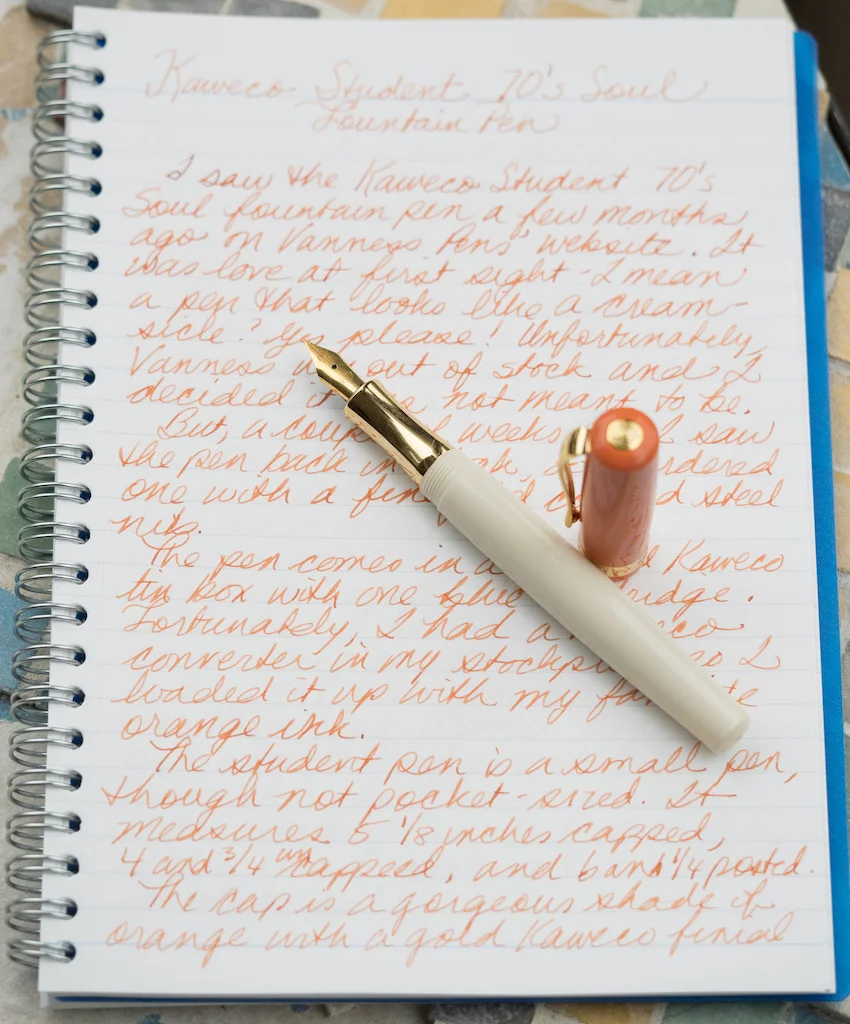 Kaweco Student 70's Soul
Fountain Pen
I saw the Kaweco Student 70's
Soul fountain pen a few months
ago on Vanness Pens' website. It
was love at first sight - I mean
a pen that looks like a cream-
sicle? Yes please! Unfortunately,
Vanness out of stock and I
decided not meant to be.
But, a weeks I saw
the pen back in
one with a steel
nib.
The pen comes in a Kaweco
tin box with one blue
Fortunately, I had a
converter in my so I
loaded it up with my
orange ink.
The student pen is a small pen,
though not pocket-sized. It
measures 5 1/8 inches capped,
4 and 3/4 uncapped, and 6 and 1/4 posted.
The cap is a gorgeous shade of
orange with a gold Kaweco finial